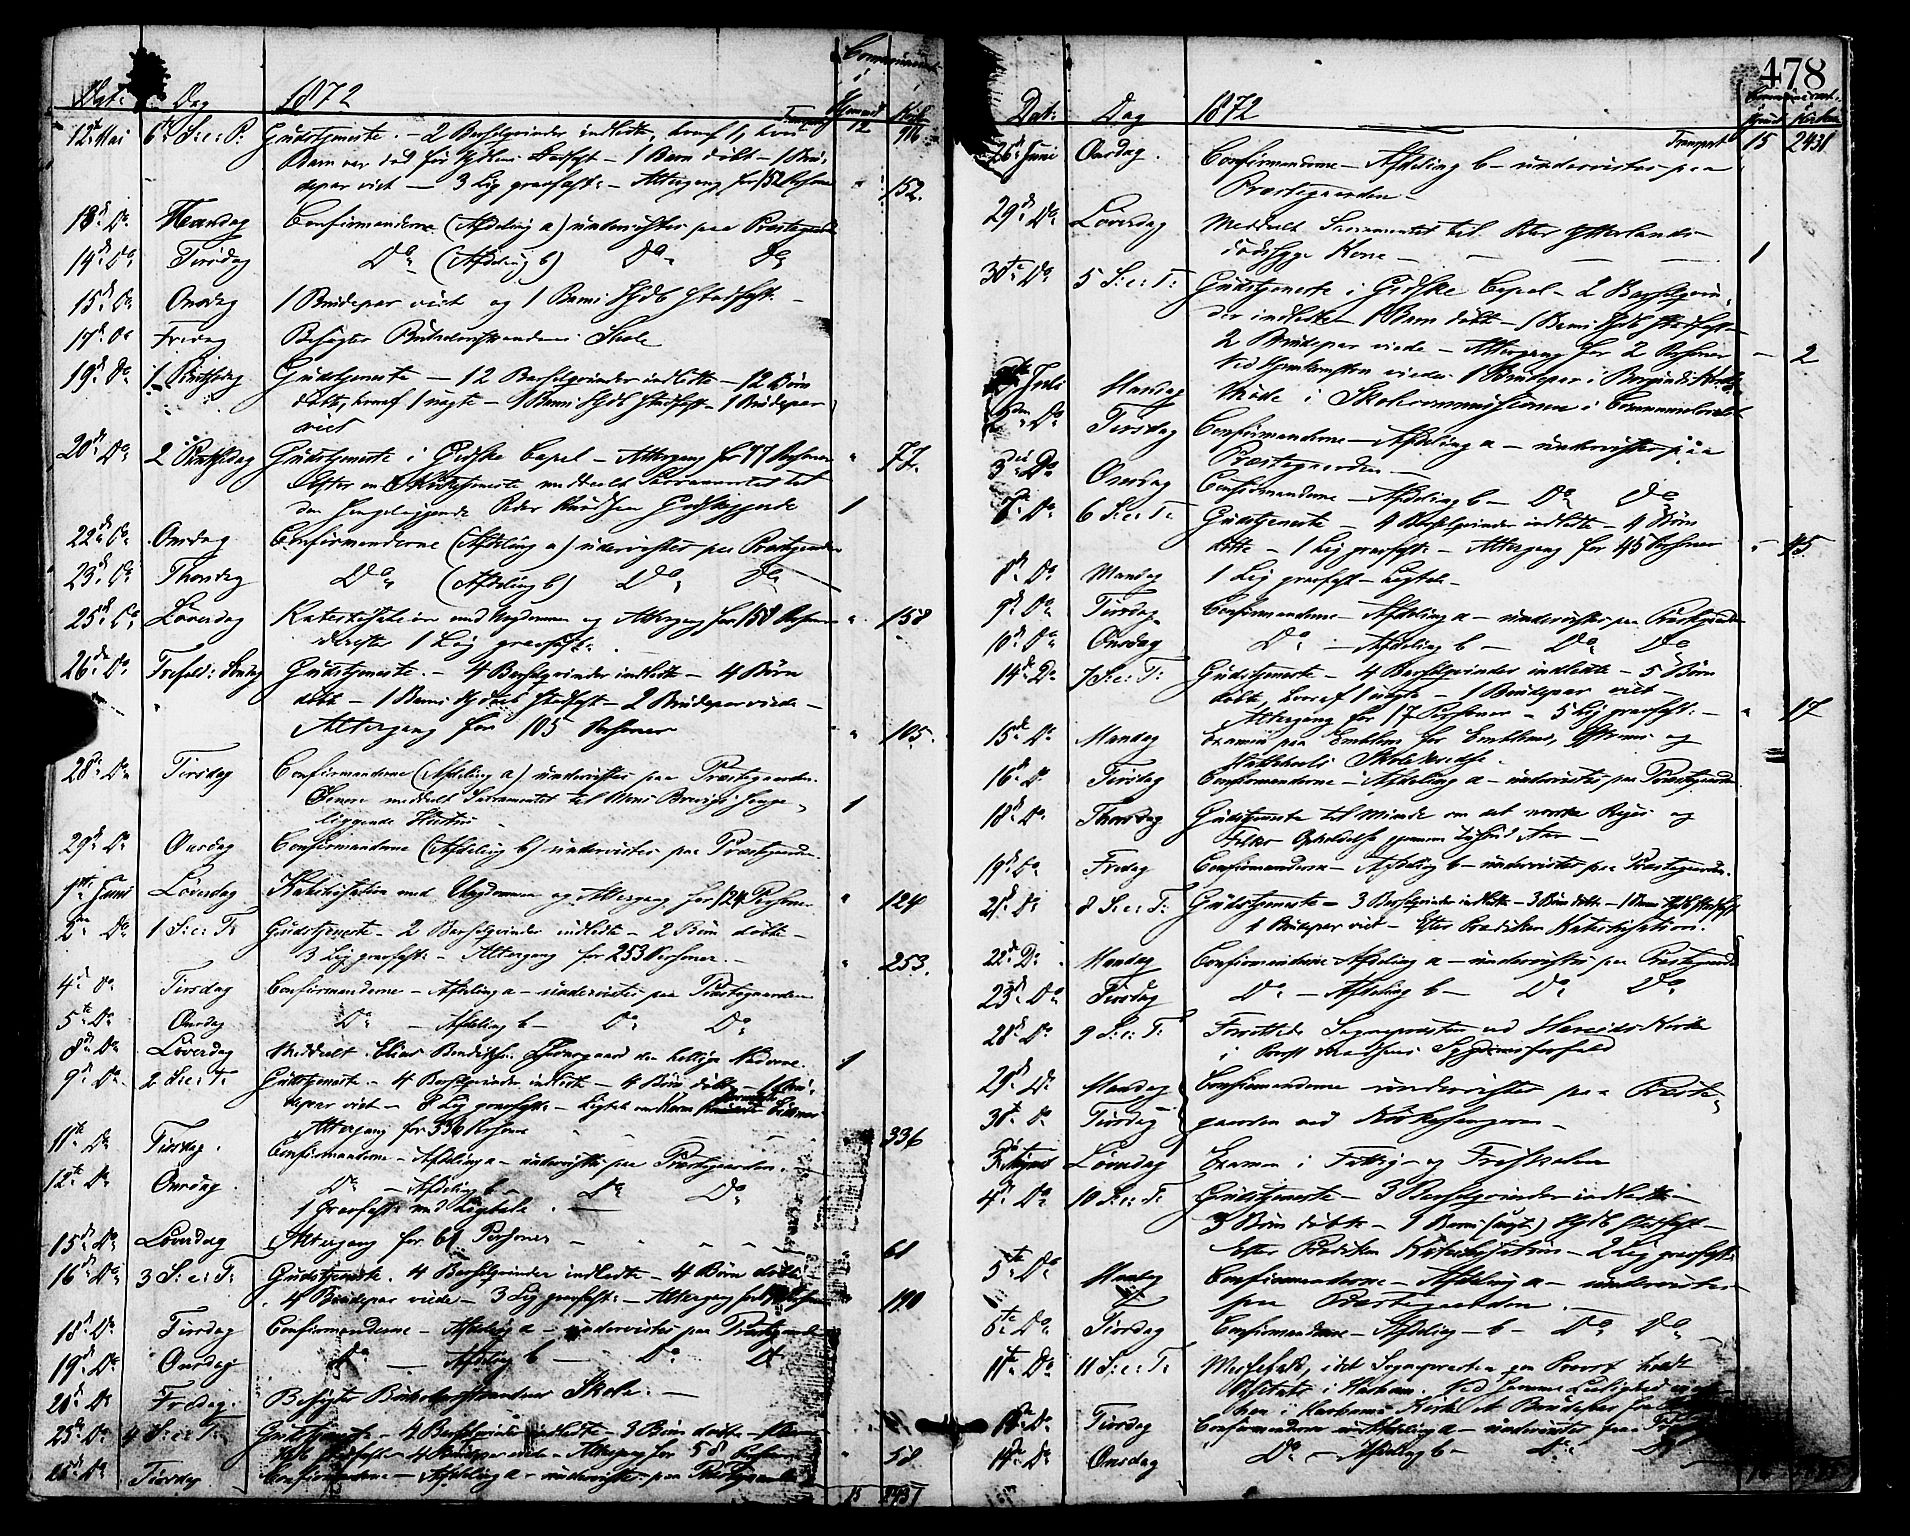 Dat: Dag 1872 Communicant: i
Hjemmet Kirk
Transport 12 916
12te Mai 6te S: e: P: Gudstjeneste. - 2 Barselqvinder indledte, hvoraf 1, hvis
Barn var død før Hjdb. Stadfest - 1 Barn døbt - 1 Bru-
depar viet - 3 Lig gravfest: - Altergang for 152 Personer " 152.
13de Do Mandag Confirmanderne (Afdeling a) undervistes paa Præstegaarden
14de Do Tirsdag Do (Afdeling b) Do Do
15de Do Onsdag 1 Brudepar viet og 1 Barns Hjdb stadfest. -
17de Do Fredag Besøgtes Buholmstrandens Skole
19de Do 1 Pintsedag Gudstjeneste - 12 Barselqvinder indledte - 12 Børn
døbte, hvoraf 1 uægte - 1 Barns Hjdb stadfest - 1 Brudepar
viet
20de Do 2 Pintsedag Gudstjeneste i Gidske Capel - Altergang for 77 Personer " 77.
Efter en Skriftemaal meddeelt Sacramentet til
den sengeliggende Peder Knudsen Godskjerde 1
22de Do Onsdag Confirmanderne (Afdeling a) undervistes paa Præstegaarden
23de Do Thorsdag Do (Afdeling b) Do Do
25de Do Løverdag Katechisation med Ungdommen og Altergang for 158 Personer " 158
derefter 1 Lig gravfest:
26de Do Trefold: Søndag Gudstjeneste. - 4 Barselqvinder indledte - 4 Børn
døbt - 1 Barns Hjdb stadfest - 2 Brudepar viede -
Altergang for 105 Personer " 105.
28de Do Tirsdag Confirmanderne (Afdeling a) undervistes paa Præstegaarden.
Senere meddeelt Sacramentet til senge- 1
liggende Hustru
29de Do Onsdag Confirmanderne (Afdeling b) undervistes paa Præstegaarden.
1ste Juni Løverdag Katechisation med Ungdommen og Altergang for 124 Personer " 124
2den Do 1 S: e: T: Gudstjeneste - 2 Barselqvinder indledte - 2 Børn døbte -
3 Lig gravfest: - Altergang for 253 Personer. - " 253.
4de Do Tirsdag Confirmanderne - Afdeling a - undervistes paa Præstegaarden
5te Do Onsdag Do - Afdeling b - Do Do
8de Do Løverdag Meddeelt Elias den hellige Nadvere. 1
9de Do 2 S: e: T: Gudstjeneste - 4 Barselqvinder indledte - 4 Børn døbte - 1 Bru-
depar viet - 8 Lig gravfest: - Ligtale over
Altergang for 336 Personer " 336
11te Do Tirsdag. Confirmanderne - Afdeling a - undervistes paa Præstegaarden.
12te Do Onsdag Do - Afdeling b - Do Do
1 Gravfest: med Ligtale. -
15de Do Løverdag Altergang for 61 Personer " 61
16de Do 3 S: e: T: Gudstjeneste. 4 Barselqvinder indledte - 4 Børn døbte
4 Brudepar viede - 3 Lig gravfest: - Altergang for Personer " 190
18de Do Tirsdag Confirmanderne - Afdeling a - undervistes paa Præstegaarden
19de Do Onsdag Do - Afdeling b - Do Do
21de Do Fredag. Besøgtes Buholmstrandens Skole. -
23de Do 4 S: e: T: Gudstjeneste - 4 Barselqvinder indledte - 3 Børn døbte - 1 Barns
Hjdb stadfest - 4 Brudepar viede - Altergang for 58 Personer " 58
25de Do Tirsdag Confirmanderne - Afdeling a - undervistes paa Præstegaarden
15 2431
478
Dat: Dag 1872 Communicant:
Hjem Kirken
Transport 15 2431
26de Juni Onsdag. Confirmanderne - Afdeling b - undervistes paa
Præstegaarden -
29de Do Løverdag Meddeelt Sacramentet til Peder Ytterlands
dødssyge Kone - 1
30te Do 5 S: e: T: Gudstjeneste i Gidske Capel - 2 Barselqvin-
der indledte - 1 Barn døbt - 1 Barns Hjdb stadfest -
2 Brudepar viede - Altergang for 2 Personer - 2
Ved Hjemkomsten viedes 1 Brudepar i Borgunds Kirke
1ste Juli Mandag Møde i Skolecommissionen i Communelocalet
2den Do Tirsdag Confirmanderne - Afdeling a - undervistes paa
Præstegaarden -
3die Do Onsdag Confirmanderne - Afdeling b - Do Do
7de Do 6 S: e: T: Gudstjeneste - 4 Barselqvinder indledte - 4 Børn
døbte - 1 Lig gravfest: - Altergang for 45 Personer " 45
8de Do Mandag 1 Lig gravfest - Ligtale -
9de Do Tirsdag Confirmanderne - Afdeling a - undervistes paa Præstegaarden
10de Do Onsdag Do - Afdeling b - Do Do
14de Do 7 S: e: T: Gudstjeneste - 4 Barselqvinder indledte - 5 Børn
døbte hvoraf 1 uægte - 1 Brudepar viet -
Altergang for 17 Personer - 5 Lig gravfest: - " 17
15de Do Mandag Examen paa Emblem for Emblems, og
Skolekredse.
16de Do Tirsdag Confirmanderne - Afdeling a - undervistes paa Præstegaarden
18de Do Thorsdag Gudstjeneste til Minde om det norske Riges og
Folks
19de Do Fredag Confirmanderne - Afdeling b - undervistes paa Præstegaarden.
21de Do 8 S: e: T: Gudstjeneste - 3 Barselqvinder indledte - 3 Børn døbte - 1 Barns Hjdb stadfest
1 Brudepar viet - Efter Prædiken Katechisation.
22de Do Mandag Confirmanderne Afdeling a - undervistes paa Præstegaarden
23de Do Tirsdag Do - Afdeling b - Do Do
28de Do 9 S: e: T: Forrettede Sognepræsten ved Hareids Kirke
i Provst Sygdomsforfald
29de Do Mandag Confirmanderne undervistes paa Præste-
30te Do Tirsdag gaarden ved Kirkesangeren -
3die August Løverdag Examen i Fattig- og Friskolen
4de Do 10 S: e: T: Gudstjeneste - 3 Barselqvinder indledte -
3 Børn døbte - 1 Barns (uægt.) Hjdb stadfest -
Efter Prædiken Katechisation - 2 Lig gravfest:
5te Do Mandag Confirmanderne - Afdeling a - undervistes
paa Præstegaarden. -
6te Do Tirsdag Confirmanderne - Afdeling - b - Do Do
11te Do 11 S: e: T: Messefald, idet Sognepræsten som Provst holdt
Visitats i Harham. Ved samme Leilighed
han i Harhams Kirke et Brudepar
13de Do Tirsdag Confirmanderne - Afdeling a - undervistes paa
14de Do Onsdag Do - Afdeling b - Do Do